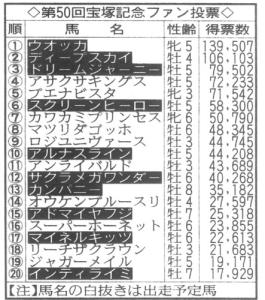 ◇第50回宝塚記念ファン投票◇
順 馬 名 性齢 得票数
① ウオッカ 牝5 139,507
② ディープスカイ 牡4 106,103
③ ドリームジャーニー 牡5 79,502
④ アサクサキングス 牡5
⑤ ブエナビスタ 牝3
⑥ スクリーンヒーロー 牡5 58,300
⑦ カワカミプリンセス 牝6 50,790
⑧ マツリダゴッホ 牡6 48,345
⑨ ロジユニヴァース 牡3 44,745
⑩ アルナスライン 牡5 44,208
⑪ アンライバルド 牡3 43,689
⑫ サクラメガワンダー 牡6 40,268
⑬ カンパニー 牡8 35,182
⑭ オウケンブルースリ 牡4 27,597
⑮ アドマイヤフジ 牡7 25,318
⑯ スーパーホーネット 牡6 23,855
⑰ マイネルキッツ 牡6
⑱ リーチザクラウン 牡3 21,683
⑲ ジャガーメイル 牡5 19,171
⑳ インティライミ 牡7 17,929
【注】馬名の白抜きは出走予定馬